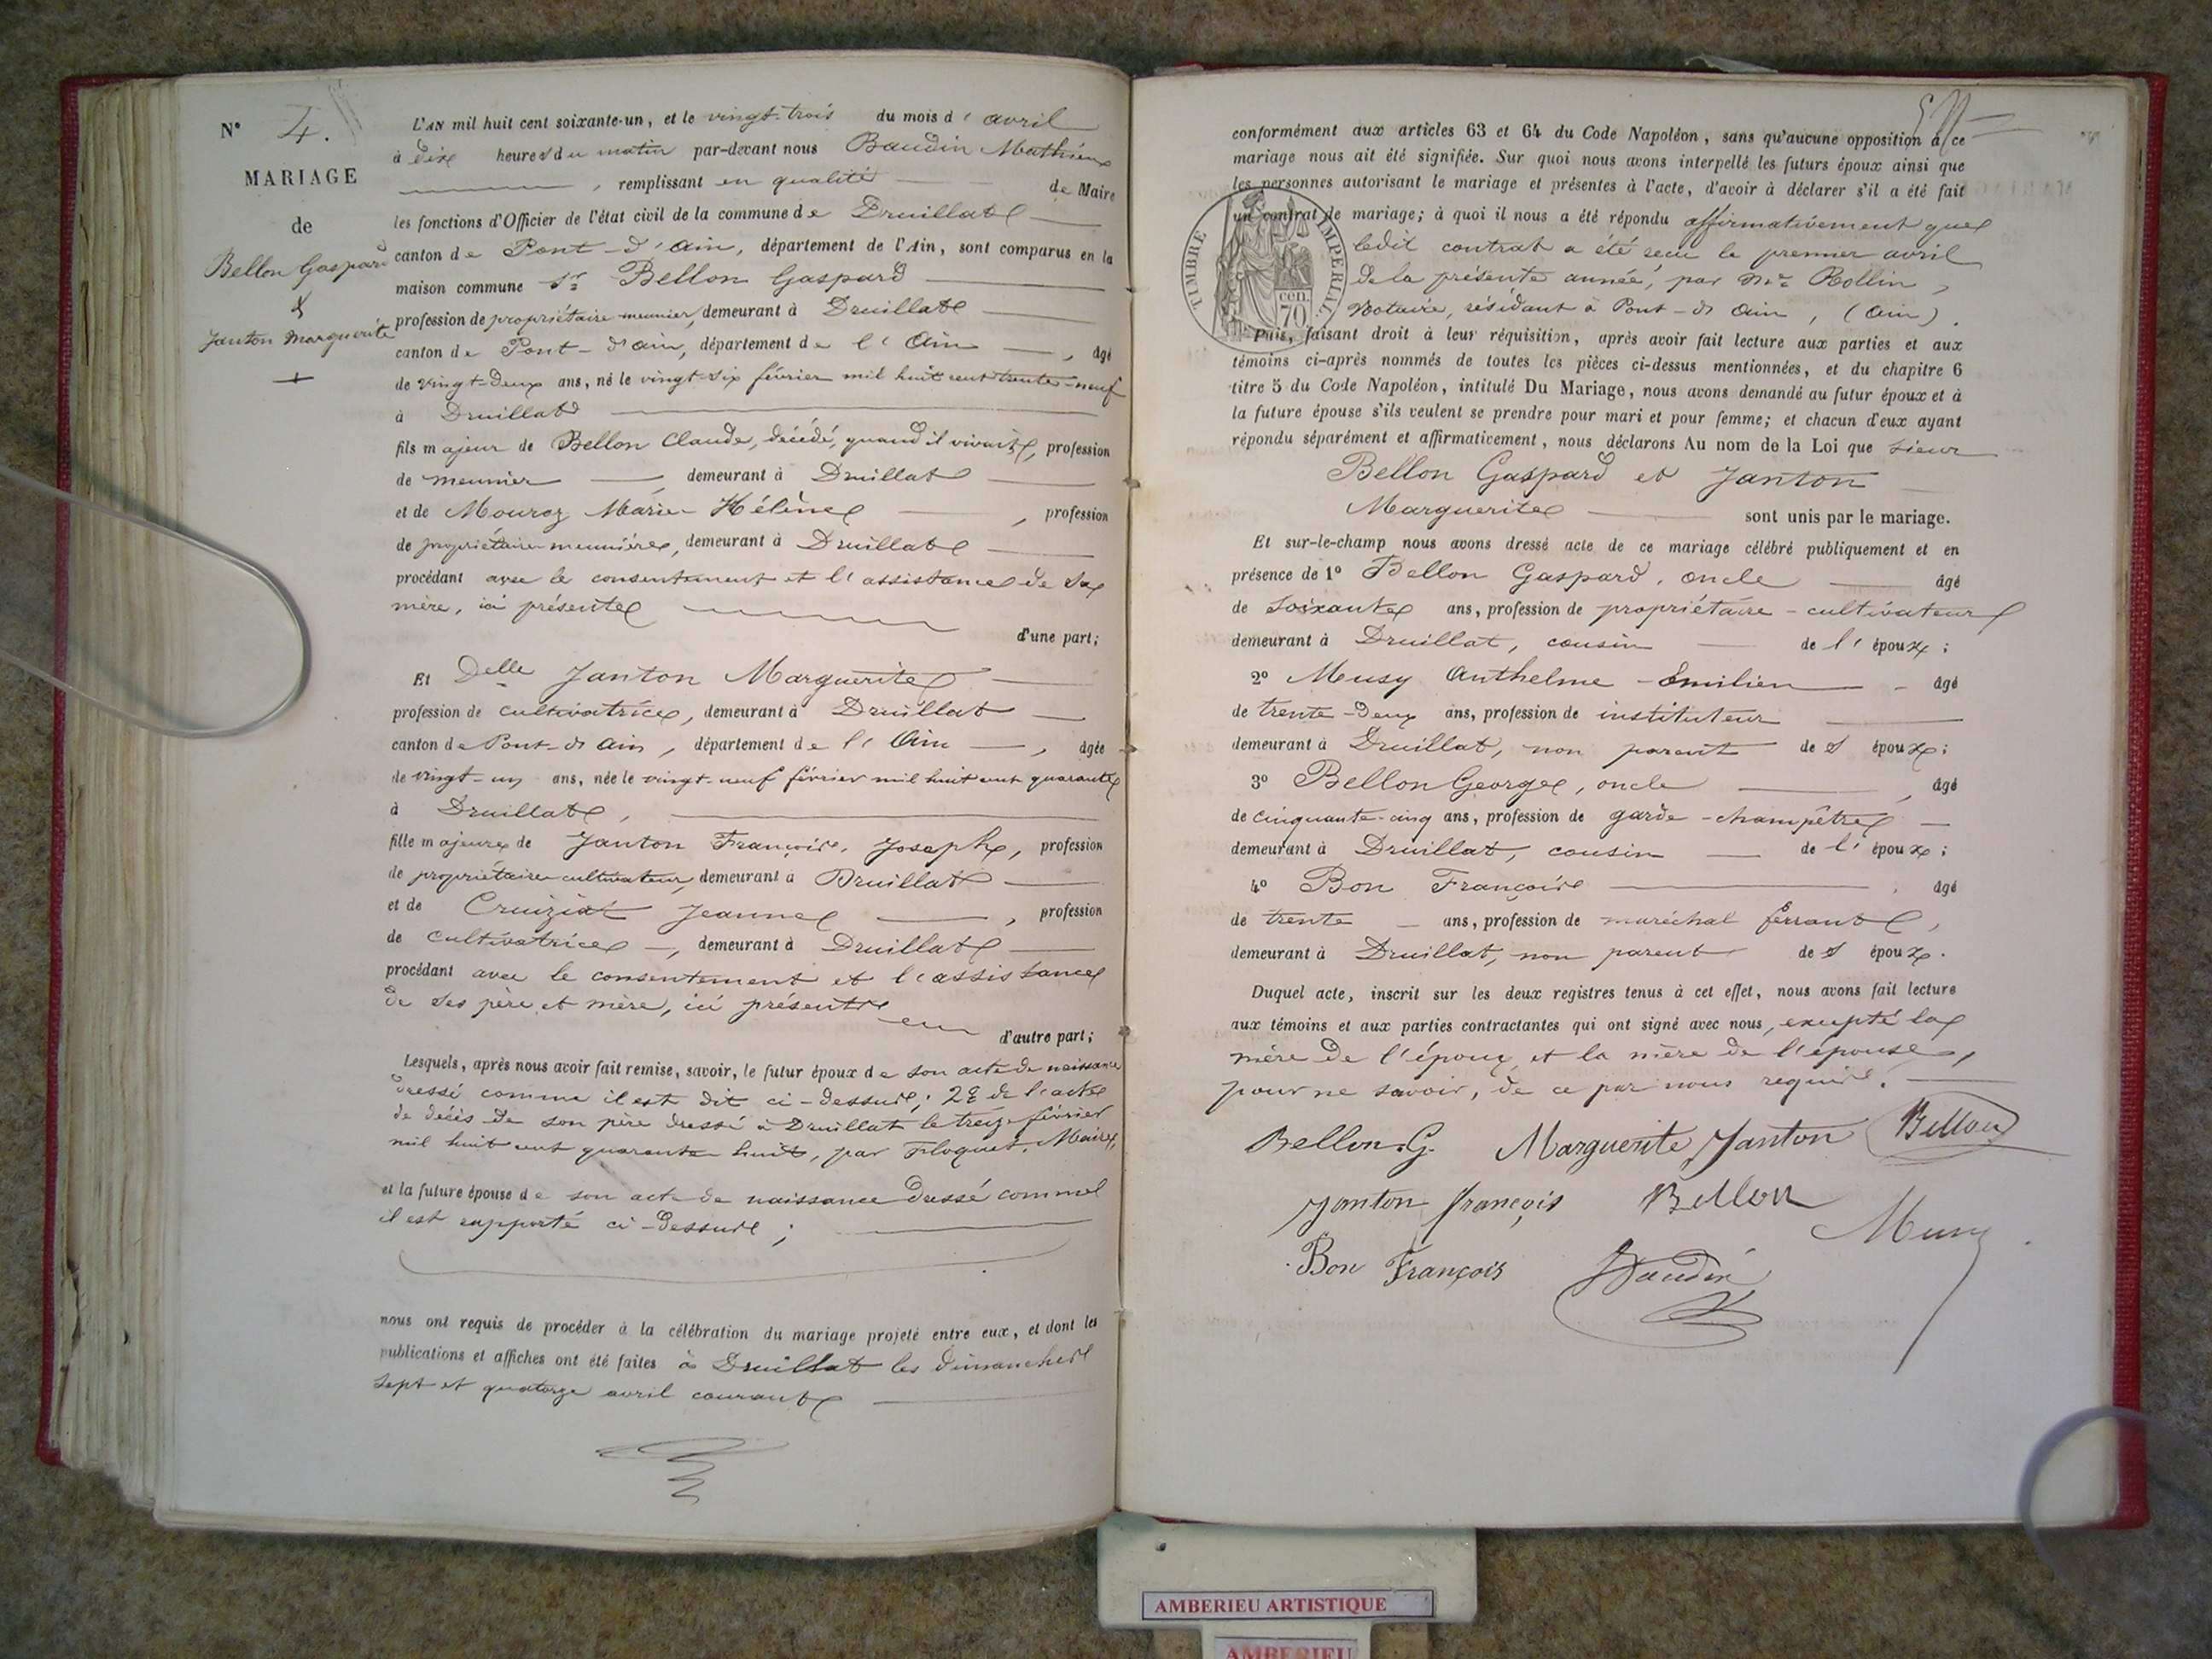 N° 4.
MARIAGE
de
Bellon Gaspard
&
Janton Marguerite
L'AN mil huit cent soixante-un, et le vingt-trois du mois d'avril
à dix heures du matin par-devant nous Baudin Mathieu
, remplissant en qualité de Maire
les fonctions d'Officier de l'état civil de la commune de Druillat
canton de Pont-d'ain, département de l'Ain, sont comparus en la
maison commune Sr Bellon Gaspard
profession de propriétaire meunier, demeurant à Druillat
canton de Pont-d'ain, département de l'Ain, âgé
de vingt-deux ans, né le vingt-six février mil huit cent trente-neuf
à Druillat
fils majeur de Bellon Claude, décédé, quand il vivait, profession
de meunier, demeurant à Druillat
et de Mouroz Marie-Hélène, profession
de propriétaire meunière, demeurant à Druillat
procédant avec le consentement et l'assistance de sa
mère, ici présente
d'une part;
Et Delle Janton Marguerite
profession de cultivatrice, demeurant à Druillat
canton de Pont-d'Ain, département de l'Ain, âgée
de vingt-un ans, née le vingt-neuf février mil huit cent quarante
à Druillat,
fille majeure de Janton François, Joseph, profession
de propriétaire cultivateur, demeurant à Druillat
et de Cruiziat Jeanne, profession
de cultivatrice, demeurant à Druillat
procédant avec le consentement et l'assistance
de ses père et mère, ici présents
d'autre part;
Lesquels, après nous avoir fait remise, savoir, le futur époux de son acte de naissance
dressé comme il est dit ci-dessus; 2e de l'acte
de décès de son père dressé à Druillat le treize février
mil huit cent quarante huit, par Floquet, Maire,
et la future épouse de son acte de naissance dressé comme
il est rapporté ci-dessus;
nous ont requis de procéder à la célébration du mariage projeté entre eux, et dont les
publications et affiches ont été faites à Druillat les dimanches
sept et quatorze avril courant
conformément aux articles 63 et 64 du Code Napoléon, sans qu'aucune opposition à ce
mariage nous ait été signifiée. Sur quoi nous avons interpellé les futurs époux ainsi que
les personnes autorisant le mariage et présentes à l'acte, d'avoir à déclarer s'il a été fait
un contrat de mariage; à quoi il nous a été répondu affirmativement que
ledit contrat a été recu le premier avril
de la présente année, par Me Rollin,
Notaire, résidant à Pont-d'Ain, (Ain).
TIMBRE IMPERIAL
cen.
70
Puis, faisant droit à leur réquisition, après avoir fait lecture aux parties et aux
témoins ci-après nommés de toutes les pièces ci-dessus mentionnées, et du chapitre 6
titre 5 du Code Napoléon, intitulé Du Mariage, nous avons demandé au futur époux et à
la future épouse s'ils veulent se prendre pour mari et pour femme; et chacun d'eux ayant
répondu séparément et affirmativement, nous déclarons Au nom de la Loi que sieur
Bellon Gaspard et Janton
Marguerite sont unis par le mariage.
Et sur-le-champ nous avons dressé acte de ce mariage célébré publiquement et en
présence de 1° Bellon Gaspard, oncle âgé
de soixante ans, profession de propriétaire-cultivateur
demeurant à Druillat, cousin de l'époux;
2° Musy Anthelme-Emilien âgé
de trente-deux ans, profession de instituteur
demeurant à Druillat, non parent des époux;
3° Bellon George, oncle, âgé
de cinquante-cinq ans, profession de garde-champêtre
demeurant à Druillat, cousin de l'époux;
4° Bon François, âgé
de trente ans, profession de maréchal ferrant,
demeurant à Druillat, non parent des époux.
Duquel acte, inscrit sur les deux registres tenus à cet effet, nous avons fait lecture
aux témoins et aux parties contractantes qui ont signé avec nous, excepté la
mère de l'époux et la mère de l'épouse,
pour ne savoir, de ce par nous requis.
Bellon.G. Marguerite Janton Bellon
Janton françois Bellon Musy
Bon François Baudin
AMBERIEU ARTISTIQUE
AMBERIEU